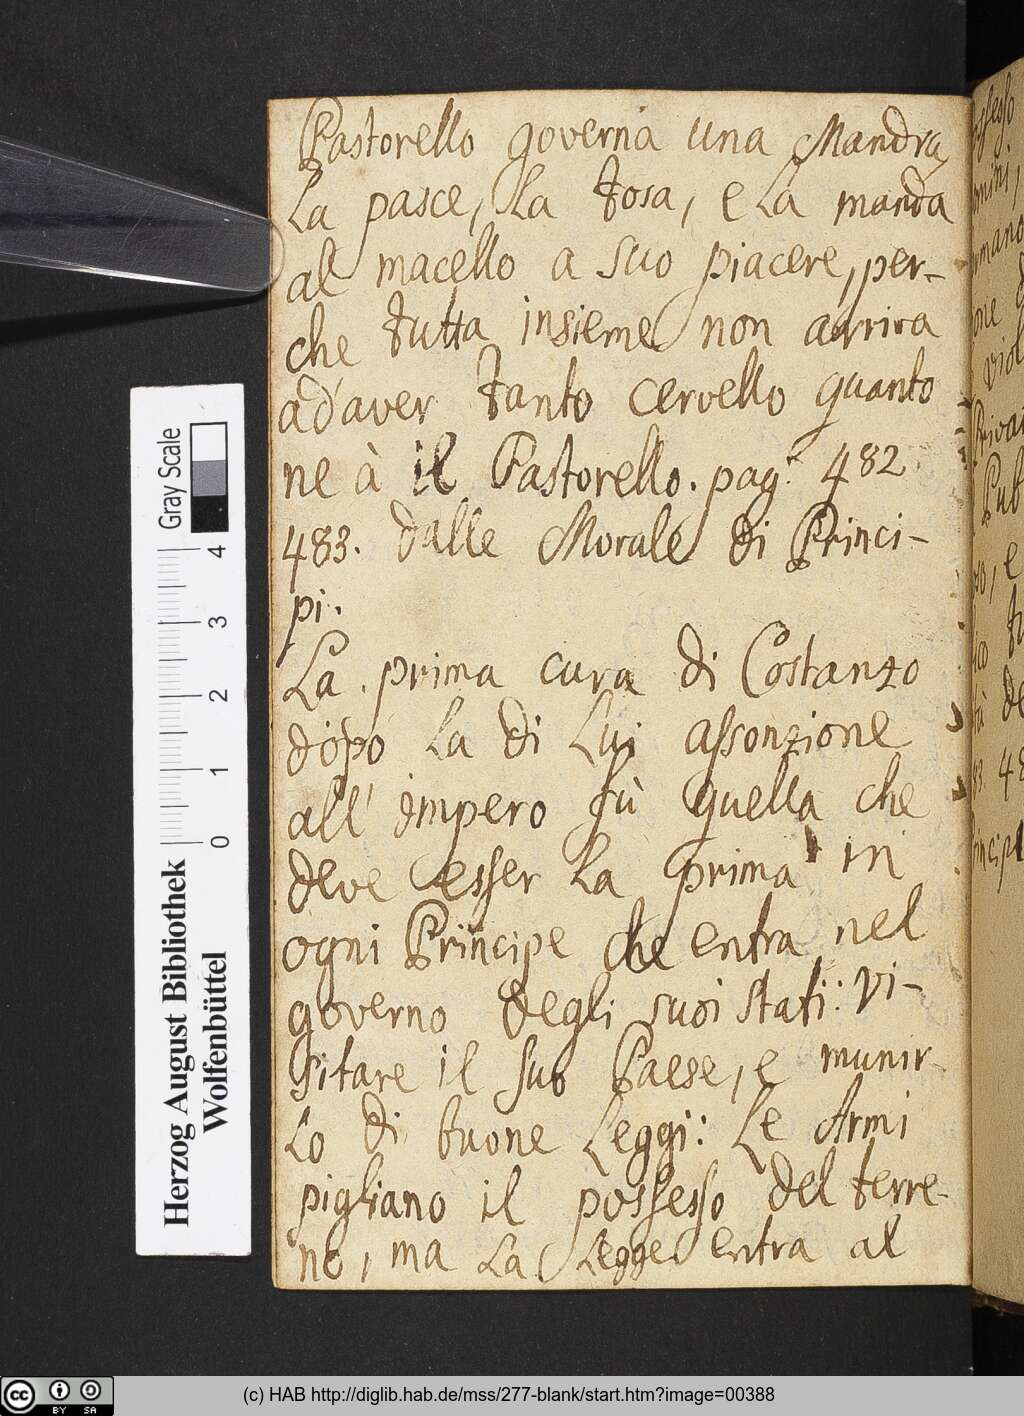 Pastorello governa una Mandra
La pasce, La tosa, e La manda
al macello a suo piacere, per-
che tutta insieme non arriva
ad'aver tanto cervello quanto
ne à il Pastorello. pag: 482
483. dalle Morale di Princi-
pi.
La prima cura di Costanzo
dopo La di Lui assonzione
all' impero fù quella che
deve esser La prima in
ogni Principe che entra nel
governo degli suoi stati: vi-
sitare il suo Paese, e munir-
Lo di buone Leggi: Le Armi
pigliano il possesso del terre-
no, ma La Legge entra al
Gray Scale
0 1 2 3 4
Herzog August Bibliothek
Wolfenbüttel
BY SA
(c) HAB http://diglib.hab.de/mss/277-blank/start.htm?image=00388